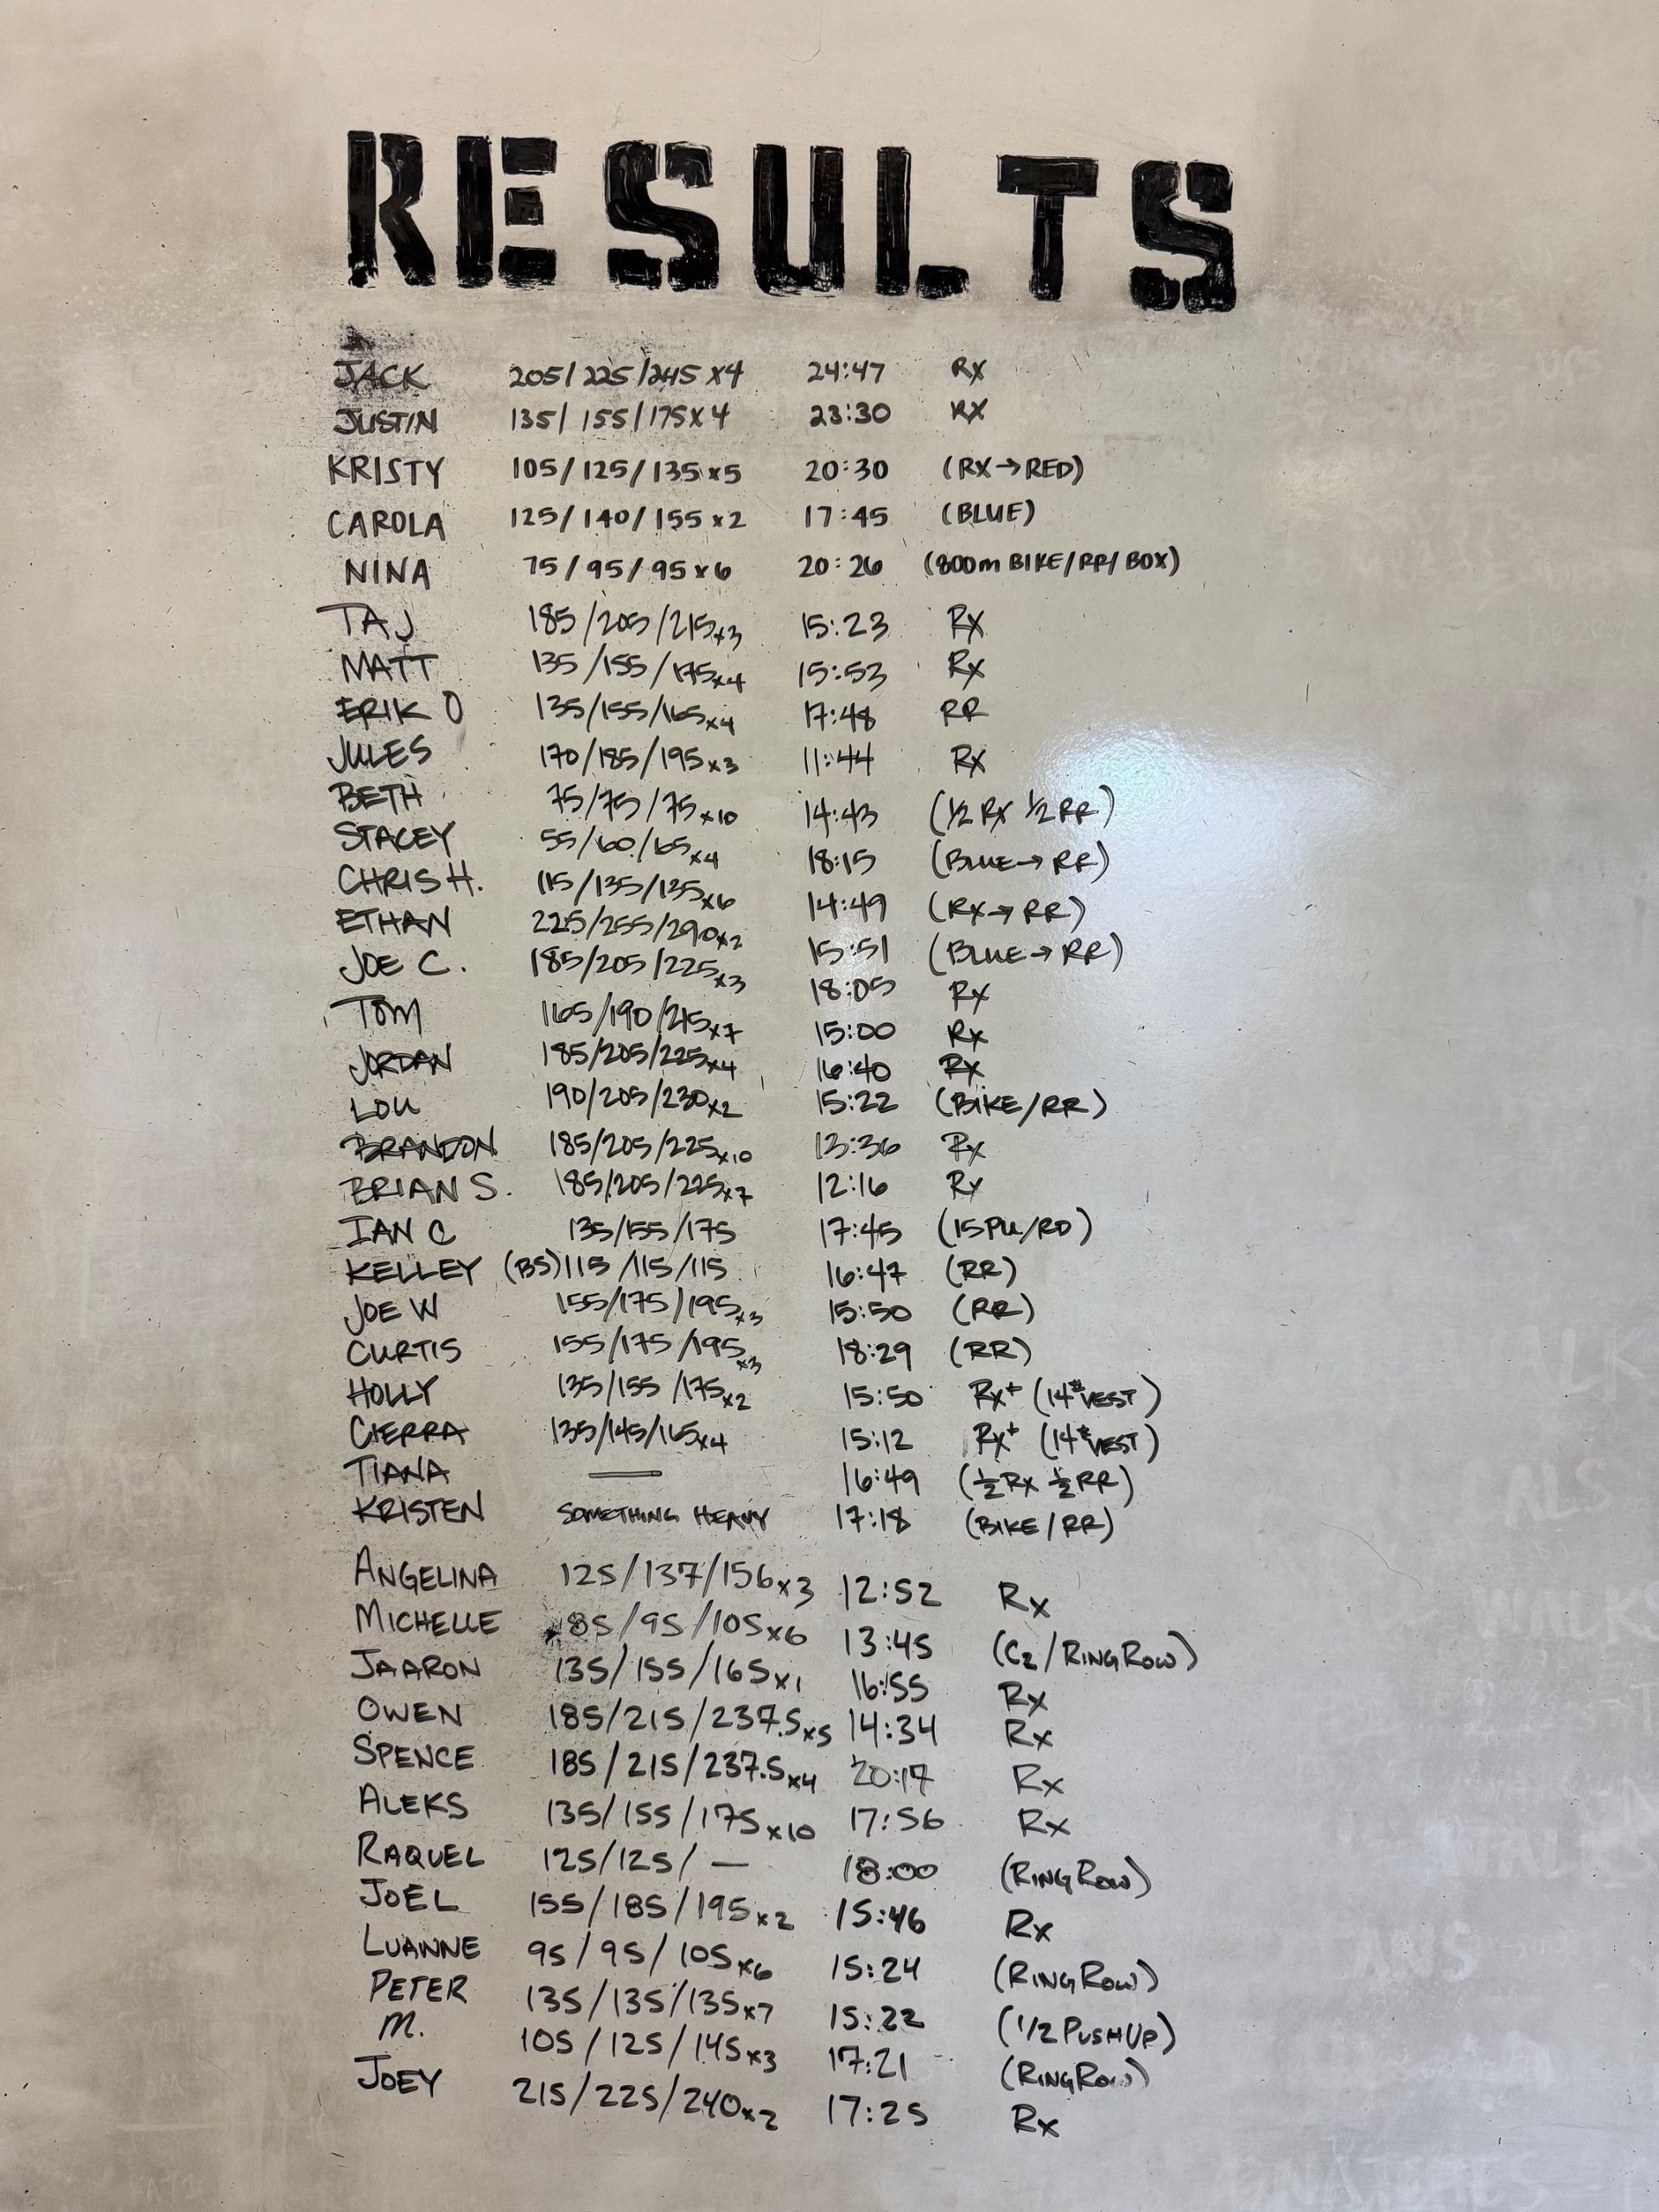 RESULTS
JACK 205/225/245 x4 24:47 RX
JUSTIN 135/155/175x4 23:30 RX
KRISTY 105/125/135x5 20:30 (RX→RED)
CAROLA 125/140/155x2 17:45 (BLUE)
NINA 75/95/95x6 20:26 (800m BIKE/RR/BOX)
TAJ 185/205/215x3 15:23 Rx
MATT 135/155/175x4 15:53 Rx
ERIK O 135/155/165x4 17:48 RR
JULES 170/185/195x3 11:44 Rx
BETH 75/75/75x10 14:43 (1/2 Rx 1/2 RR)
STACEY 55/60/65x4 18:15 (BLUE→RR)
CHRIS H. 115/135/135x6 14:49 (Rx→RR)
ETHAN 225/255/290x2 15:51 (BLUE→RR)
JOE C. 185/205/225x3 18:05 Rx
TOM 165/190/215x7 15:00 Rx
JORDAN 185/205/225x4 16:40 Rx
LOU 190/205/230x2 15:22 (BIKE/RR)
BRANDON 185/205/225x10 13:36 Rx
BRIAN S. 185/205/225x7 12:16 Rx
IAN C 135/155/175 17:45 (15PU/RD)
KELLEY (BS)115/115/115 16:47 (RR)
JOE W 155/175/195x3 15:50 (RR)
CURTIS 155/175/195x3 18:29 (RR)
HOLLY 135/155/175x2 15:50 Rx+ (14# VEST)
CIERRA 135/145/165x4 15:12 Rx+ (14# VEST)
TIANA — 16:49 (1/2 Rx 1/2 RR)
KRISTEN SOMETHING HEAVY 17:18 (BIKE/RR)
ANGELINA 125/137/156x3 12:52 Rx
MICHELLE 85/95/105x6 13:45 (C2/RING ROW)
JAARON 135/155/165x1 16:55 Rx
OWEN 185/215/237.5x5 14:34 Rx
SPENCE 185/215/237.5x4 20:17 Rx
ALEKS 135/155/175x10 17:56 Rx
RAQUEL 125/125/— 18:00 (RING ROW)
JOEL 155/185/195x2 15:46 Rx
LUANNE 95/95/105x6 15:24 (RING ROW)
PETER 135/135/135x7 15:22 (1/2 PUSH UP)
M. 105/125/145x3 17:21 (RING ROW)
JOEY 215/225/240x2 17:25 Rx